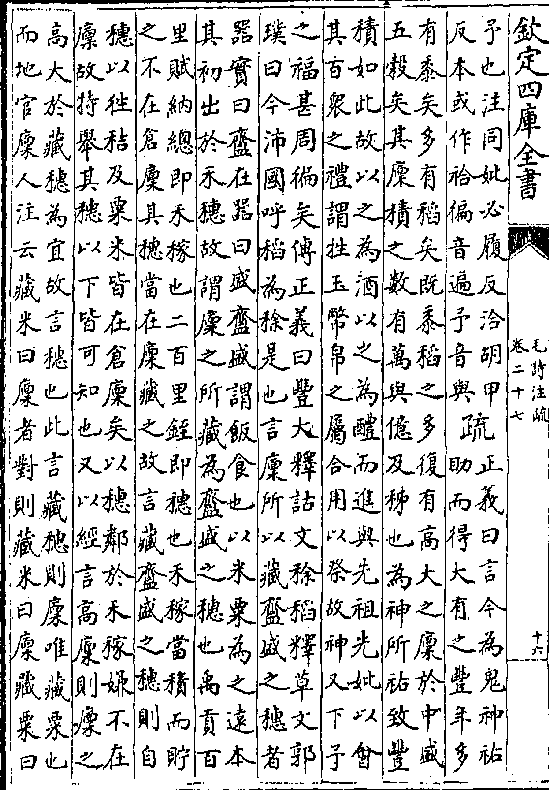 欽定四庫全書
毛詩注疏
卷二十七
十六
予也注同妣必履反洽胡甲
反本或作祫徧音遍予音與
疏
正義曰言今為鬼神祐
助而得大有之豐年多
有黍矣多有稻矣既黍稻之多復有高大之廩於中盛
五穀矣其廩積之數有萬與億及秭也為神所祐致豐
積如此故以之為酒以之為醴而進與先祖先妣以會
其百衆之禮謂牲玉幣帛之屬合用以祭故神又下予
之福甚周徧矣傳正義曰豐大釋詁文稌稻釋草文郭
璞曰今沛國呼稻為稌是也言廩所以藏齍盛之穗者
器實曰齍在器曰盛齍盛謂飯食也以米粟為之遠本
其初出於禾穗故謂廩之所藏為齍盛之穗也禹貢百
里賦納總即禾稼也二百里銍即穗也禾稼當積而貯
之不在倉廩其穗當在廩藏之故言藏齍盛之穗則自
穗以徃秸及粟米皆在倉廩矣以穗鄰於禾稼嫌不在
廩故特舉其穗以下皆可知也又以經言高廩則廩之
高大於藏穗為宜故言穗也此言藏穗則廩唯藏粟也
而地官廩人注云藏米曰廩者對則藏米曰廩藏粟曰